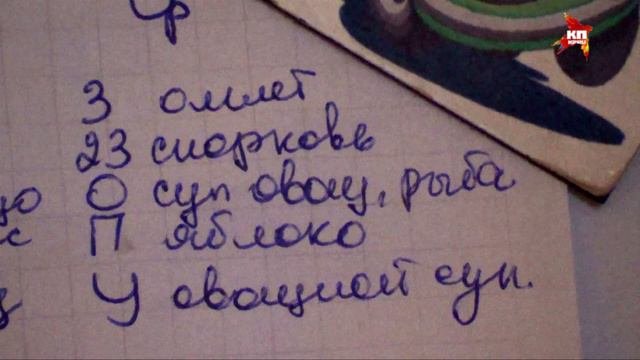 З омлет
2З морковь
О суп овощ, рыба
П яблоко
У овощной суп.
КП